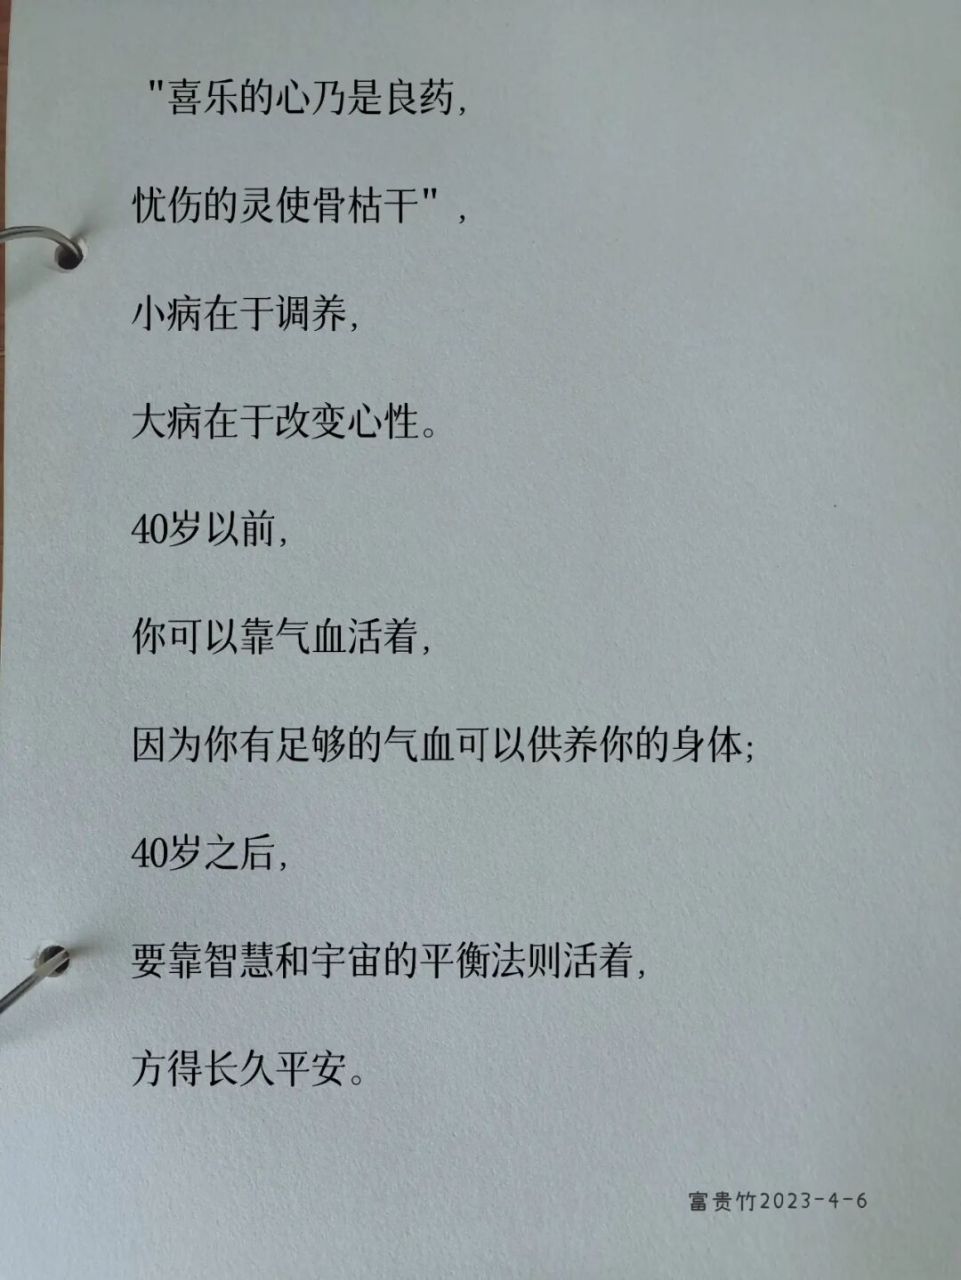 "喜乐的心乃是良药,
忧伤的灵使骨枯干",
小病在于调养,
大病在于改变心性。
40岁以前,
你可以靠气血活着,
因为你有足够的气血可以供养你的身体;
40岁之后,
要靠智慧和宇宙的平衡法则活着,
方得长久平安。
富贵竹2023-4-6